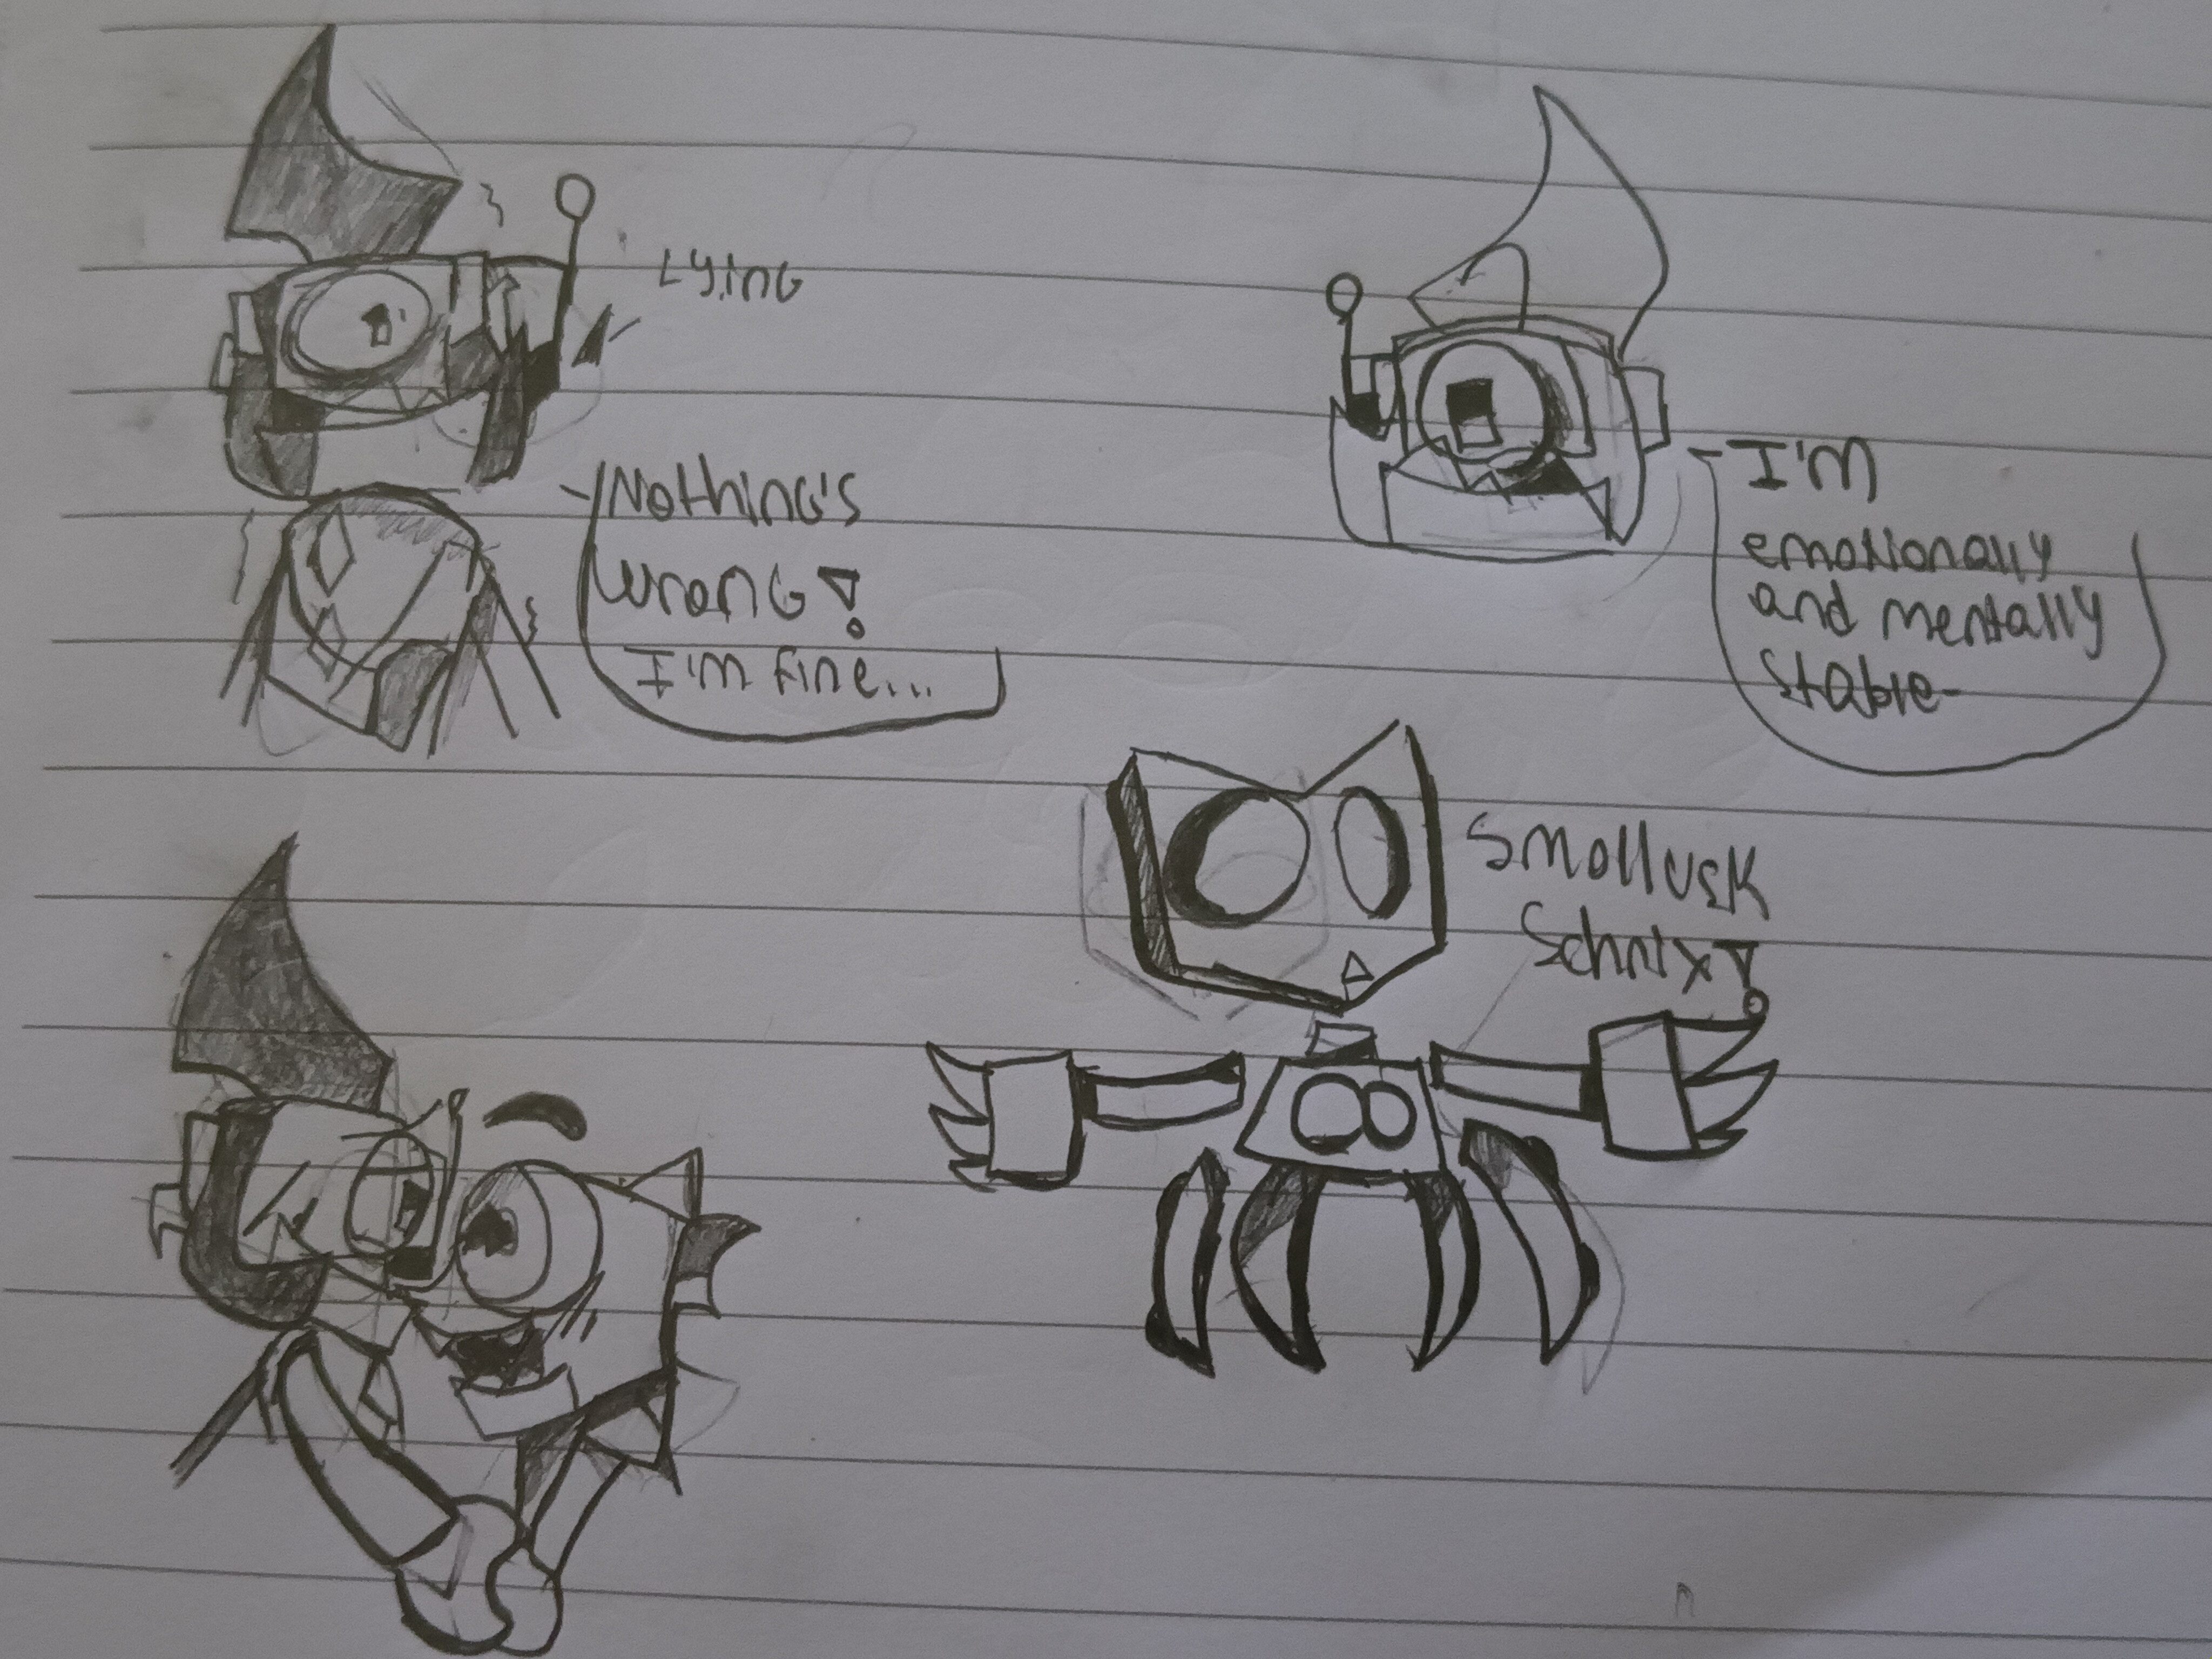 Lying
Nothing's
wrong!
I'm fine...
I'm
emotionally
and mentally
stable-
Smollusk
Schnix!